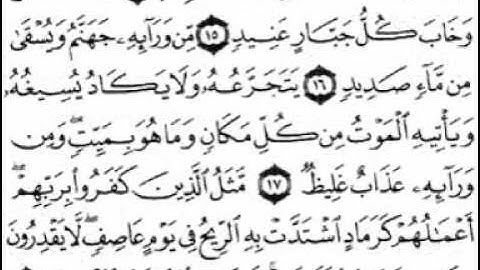 وَخَابَ كُلُّ جَبَّارٍ عَنِيدٍ ١٥ مِّن وَرَآئِهِۦ جَهَنَّمُ وَيُسْقَىٰ
مِن مَّآءٍ صَدِيدٍ ١٦ يَتَجَرَّعُهُۥ وَلَا يَكَادُ يُسِيغُهُۥ
وَيَأْتِيهِ الْمَوْتُ مِن كُلِّ مَكَانٍ وَمَا هُوَ بِمَيِّتٍ ۖ وَمِن
وَرَآئِهِۦ عَذَابٌ غَلِيظٌ ١٧ مَّثَلُ الَّذِينَ كَفَرُوا بِرَبِّهِمْ ۖ
أَعْمَالُهُمْ كَرَمَادٍ اشْتَدَّتْ بِهِ الرِّيحُ فِي يَوْمٍ عَاصِفٍ ۖ لَّا يَقْدِرُونَ